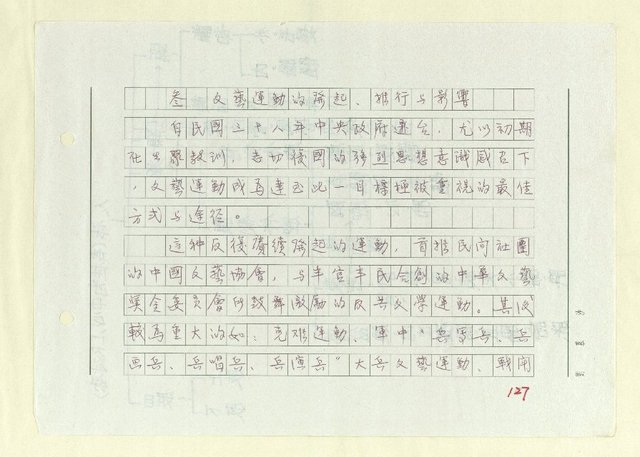 叁 文藝運動的發起、推行与影響
自民國三十八年中央政府遷台,尤以初期
在 教訓,急切復國的強烈思想意識感召下
,文藝運動成為達至此一目標極被重視的最佳
方式与途徑。
這种反復賡續發起的運動,首推民间社團
的中國文藝協會,与半官半民合創的中華文藝
獎金委員會所鼓舞激勵的反共文學運動。其後
較為重大的如:克难運動、軍中“兵寫兵、兵
画兵、兵唱兵、兵演兵”大兵文藝運動、戰鬥
127